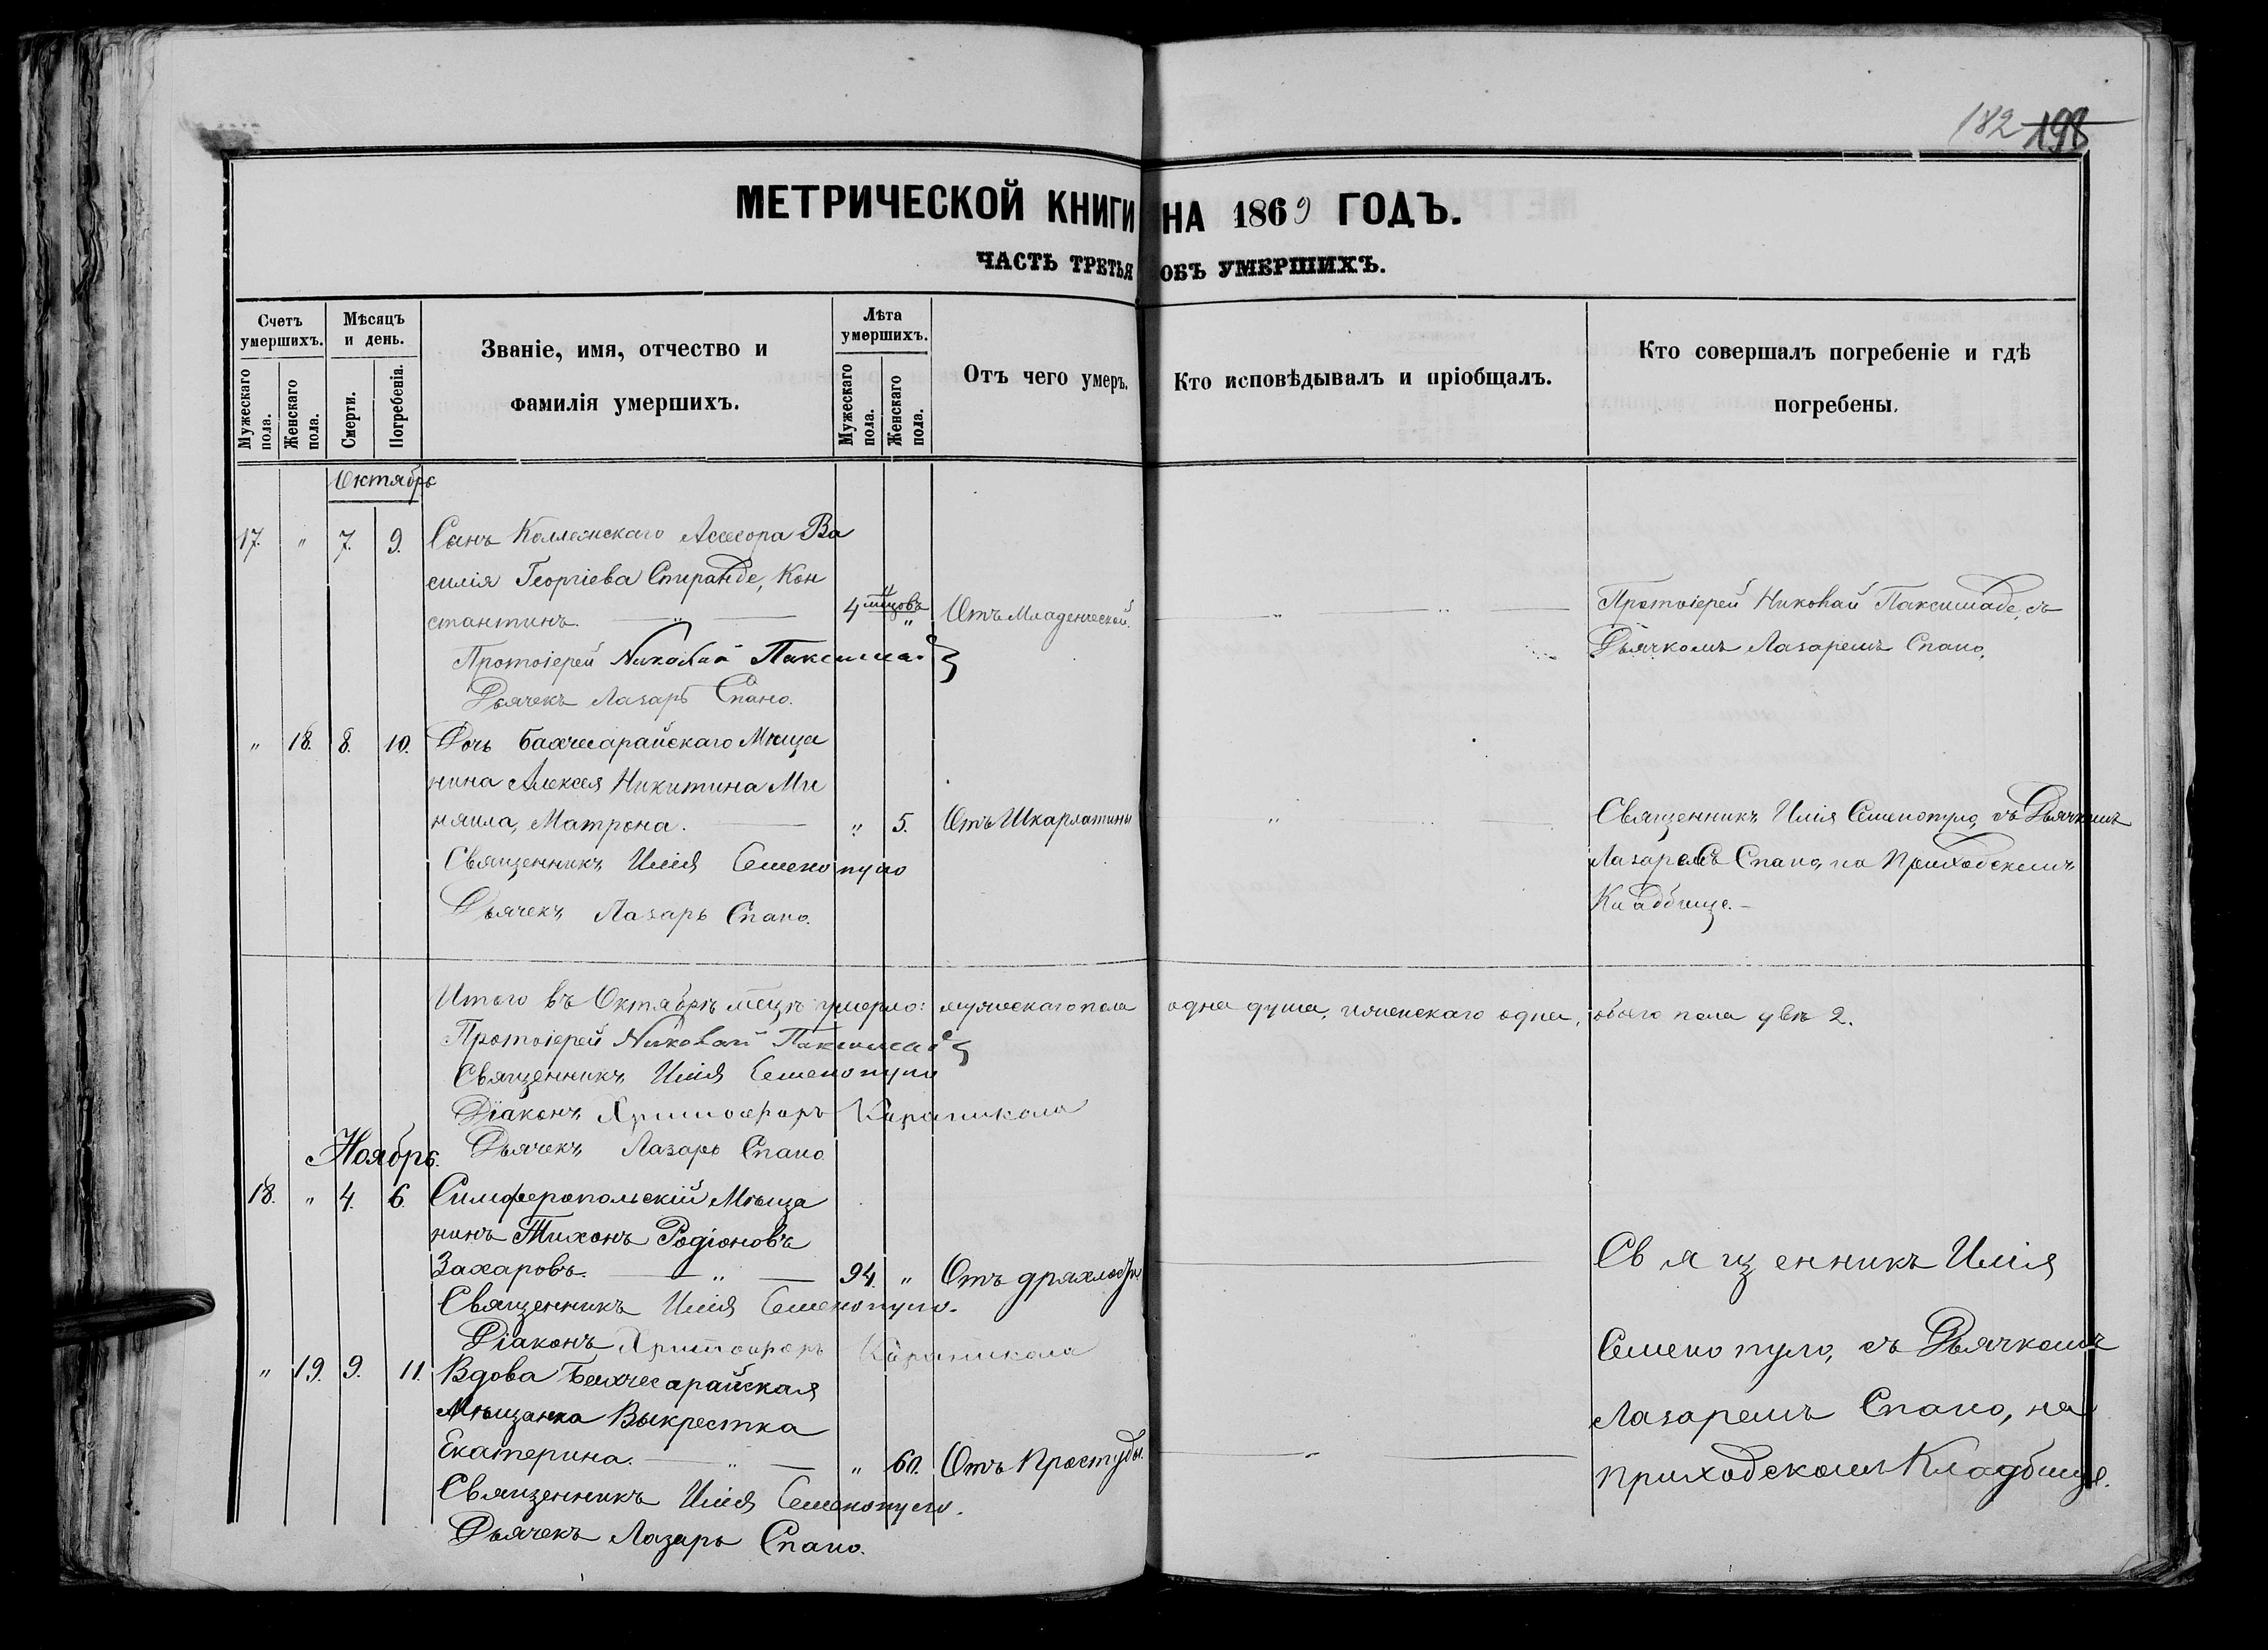 182 198
МЕТРИЧЕСКОЙ КНИГИ НА 1869 ГОДЪ.
ЧАСТЬ ТРЕТЬЯ ОБЪ УМЕРШИХЪ.
Счетъ умершихъ.
Мѣсяцъ и день.
Званіе, имя, отчество и фамилія умершихъ.
Лѣта умершихъ.
Отъ чего умеръ.
Кто исповѣдывалъ и пріобщалъ.
Кто совершалъ погребеніе и гдѣ погребены.
Мужескаго пола.
Женскаго пола.
Смерти.
Погребенія.
Мужескаго пола.
Женскаго пола.
Октябрь
17. " 7. 9. Сынъ Коллежскаго Ассесора Ва
силія Георгіева Спиранде, Кон
стантинъ. 4 мѣцовъ " Отъ Младенческой.
Протоіерей Николай Паксимаде, съ
Дьячкомъ Лазаремъ Спано.
Протоіерей Николай Паксимаде
Дьячекъ Лазарь Спано.
" 18. 8. 10. Дочь Бахчесарайскаго Мѣща
нина Алексея Никитина Ми
няила, Матрона. " 5. Отъ Шкарлатины
Священникъ Илія Семенопуло, съ Дьячкомъ
Лазаремъ Спано, на Приходскомъ
Кладбище.
Священникъ Илія Семенопуло
Дьячекъ Лазарь Спано.
Итого въ Октябрѣ мѣцѣ умерло: мужескаго пола одна душа, женскаго одна, обоего пола двѣ 2.
Протоіерей Николай Паксимаде
Священникъ Илія Семенопуло
Діаконъ Христофоръ Карапикола
Дьячекъ Лазарь Спано
Ноябрь.
18. " 4. 6. Симферопольскій Мѣща
нинъ Тихонъ Родіоновъ
Захаровъ. 94. " Отъ дряхлости
Священникъ Илія Семенопуло.
Діаконъ Христофоръ Карапикола
" 19. 9. 11. Вдова Бахчесарайская
Мѣщанка Выкрестка
Екатерина. " 60. Отъ Простуды.
Священникъ Илія Семенопуло.
Дьячекъ Лазарь Спано.
Священникъ Илія
Семенопуло, съ Дьячкомъ
Лазаремъ Спано, на
приходскомъ Кладбище.